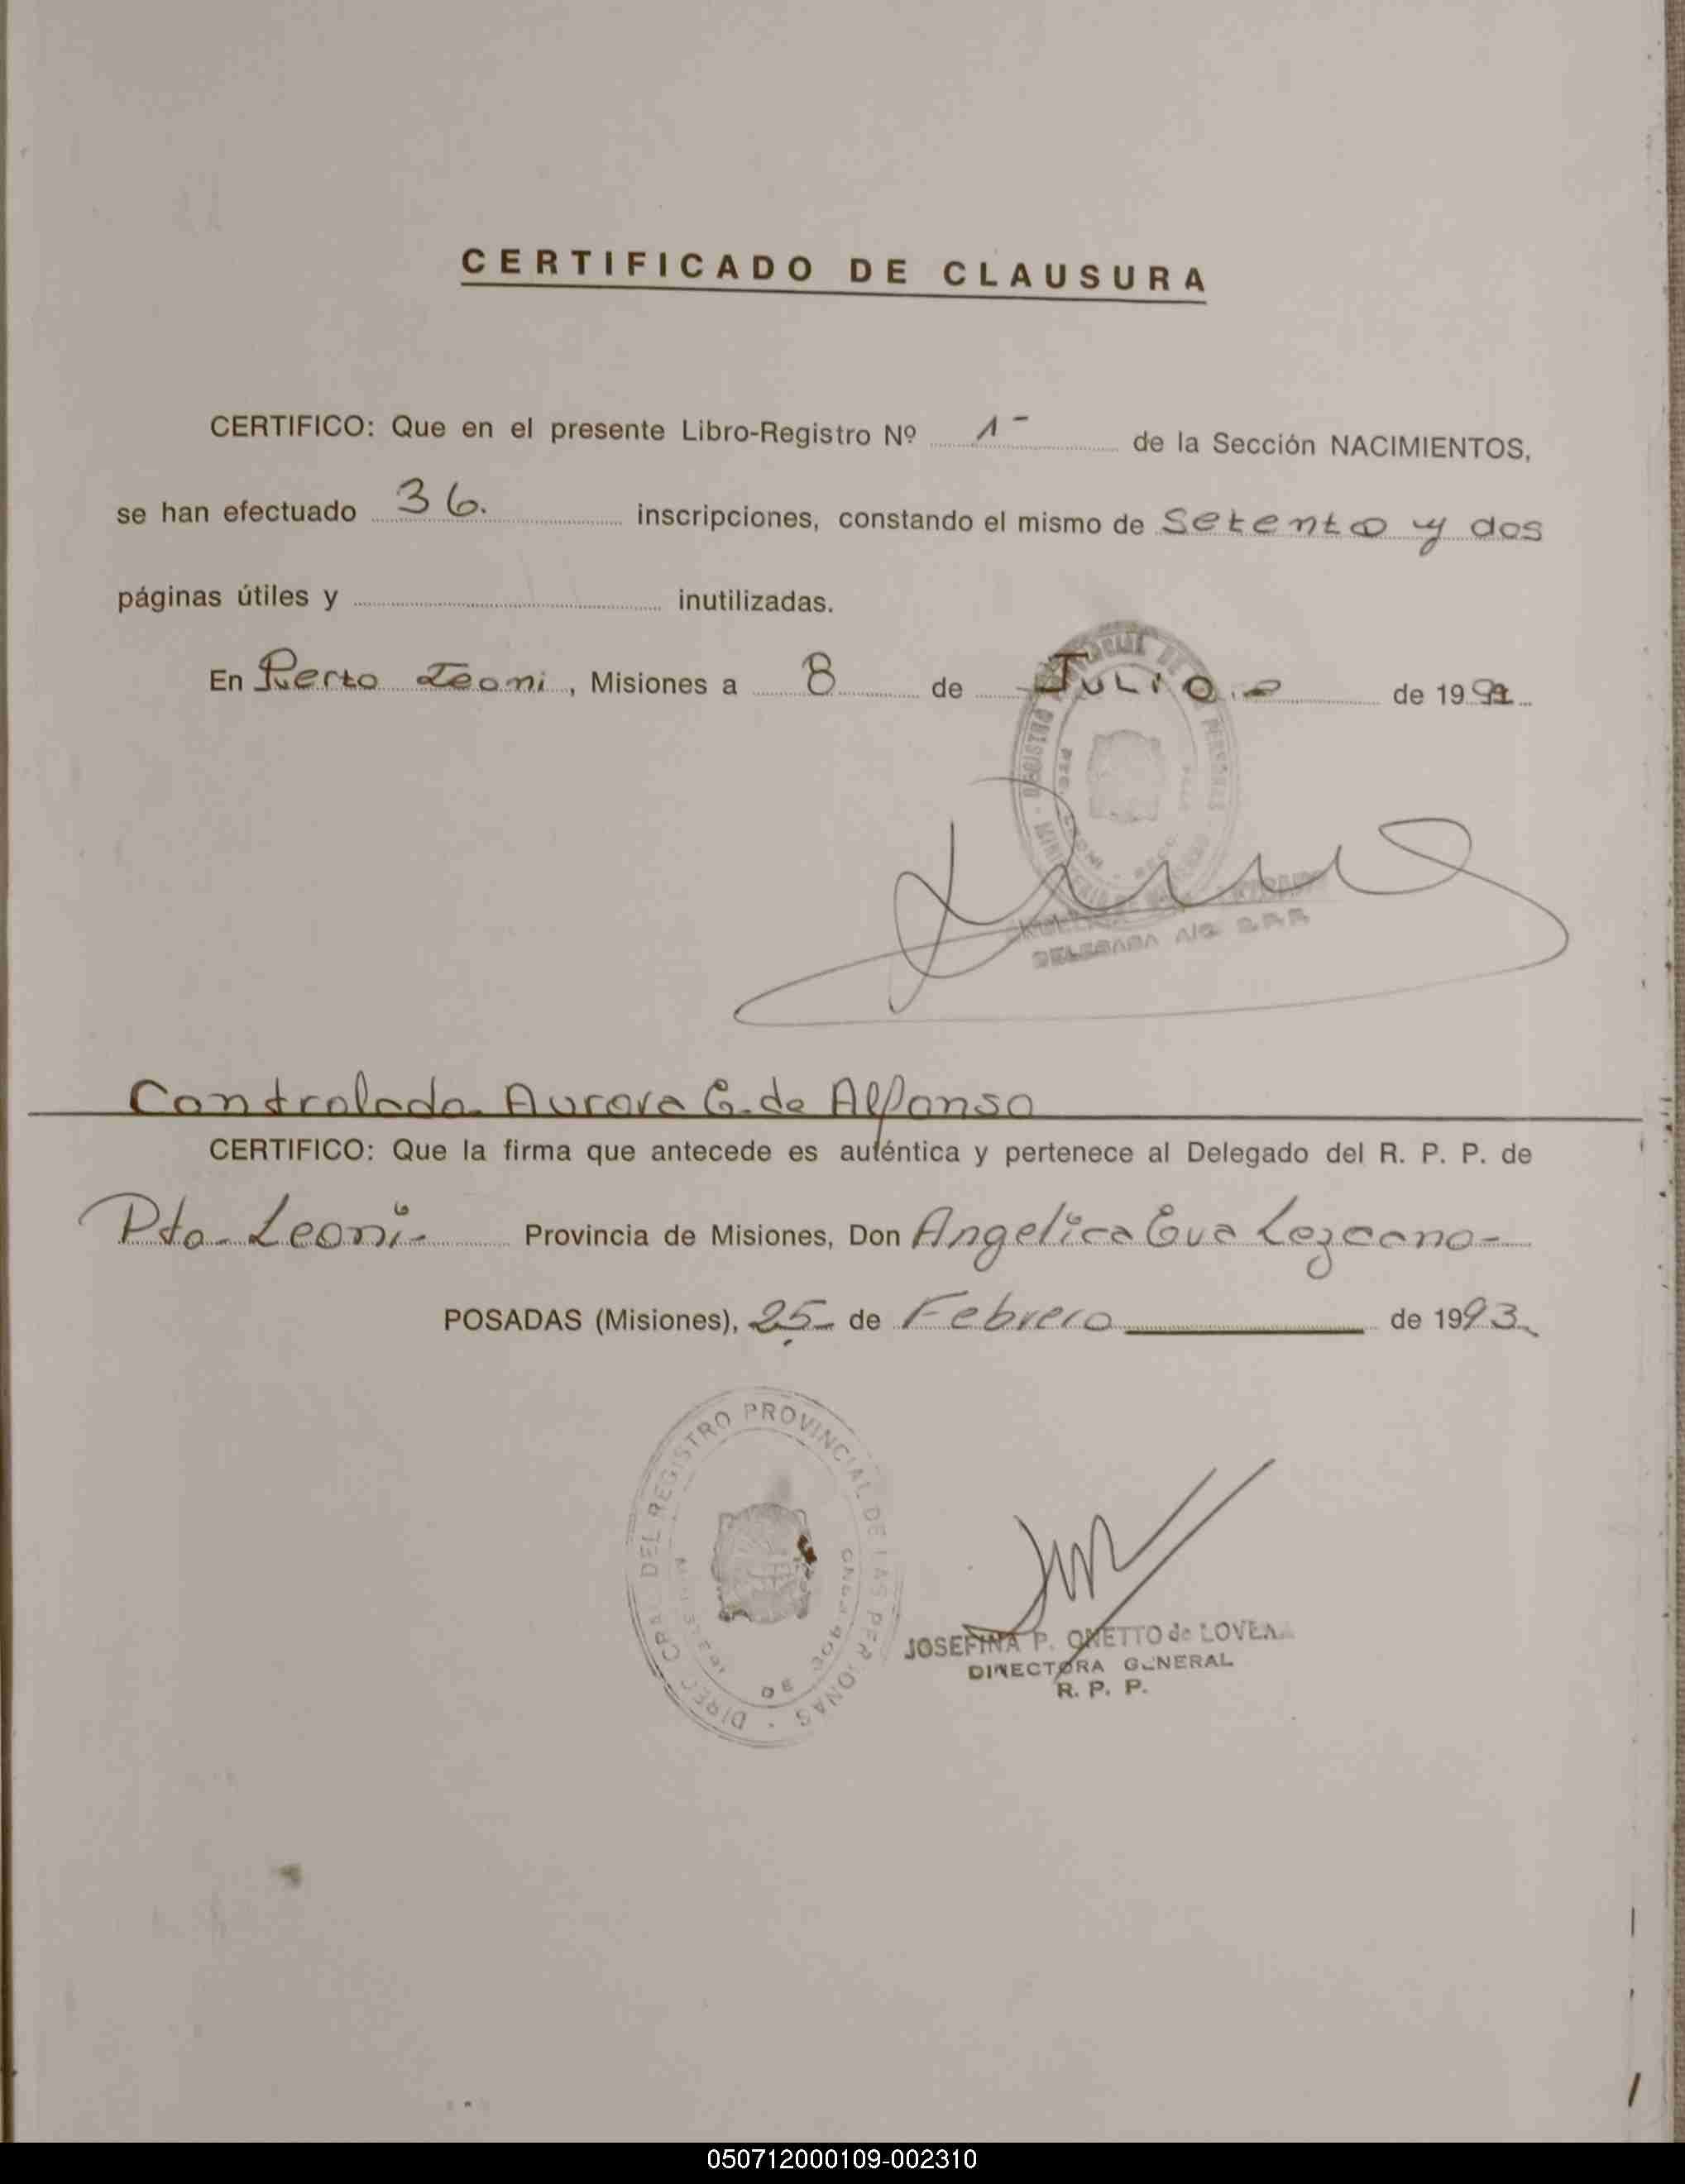 CERTIFICADO DE CLAUSURA
CERTIFICO: Que en el presente Libro-Registro Nº 1- de la Sección NACIMIENTOS,
se han efectuado 36. inscripciones, constando el mismo de Setenta y dos
páginas útiles y inutilizadas.
En Puerto Leoni, Misiones a 8 de Julio.- de 19
DELEGADA
Controlado Aurora G. de Alfonso
CERTIFICO: Que la firma que antecede es auténtica y pertenece al Delegado del R. P. P. de
Pto. Leoni- Provincia de Misiones, Don Angelica Eva Lezcano-
POSADAS (Misiones), 25- de Febrero de 1993.
DIREC. GRAL. DEL REGISTRO PROVINCIAL DE LAS PERSONAS
JOSEFINA P. ONETTO de LOVERA
DIRECTORA GENERAL
R. P. P.
050712000109-002310